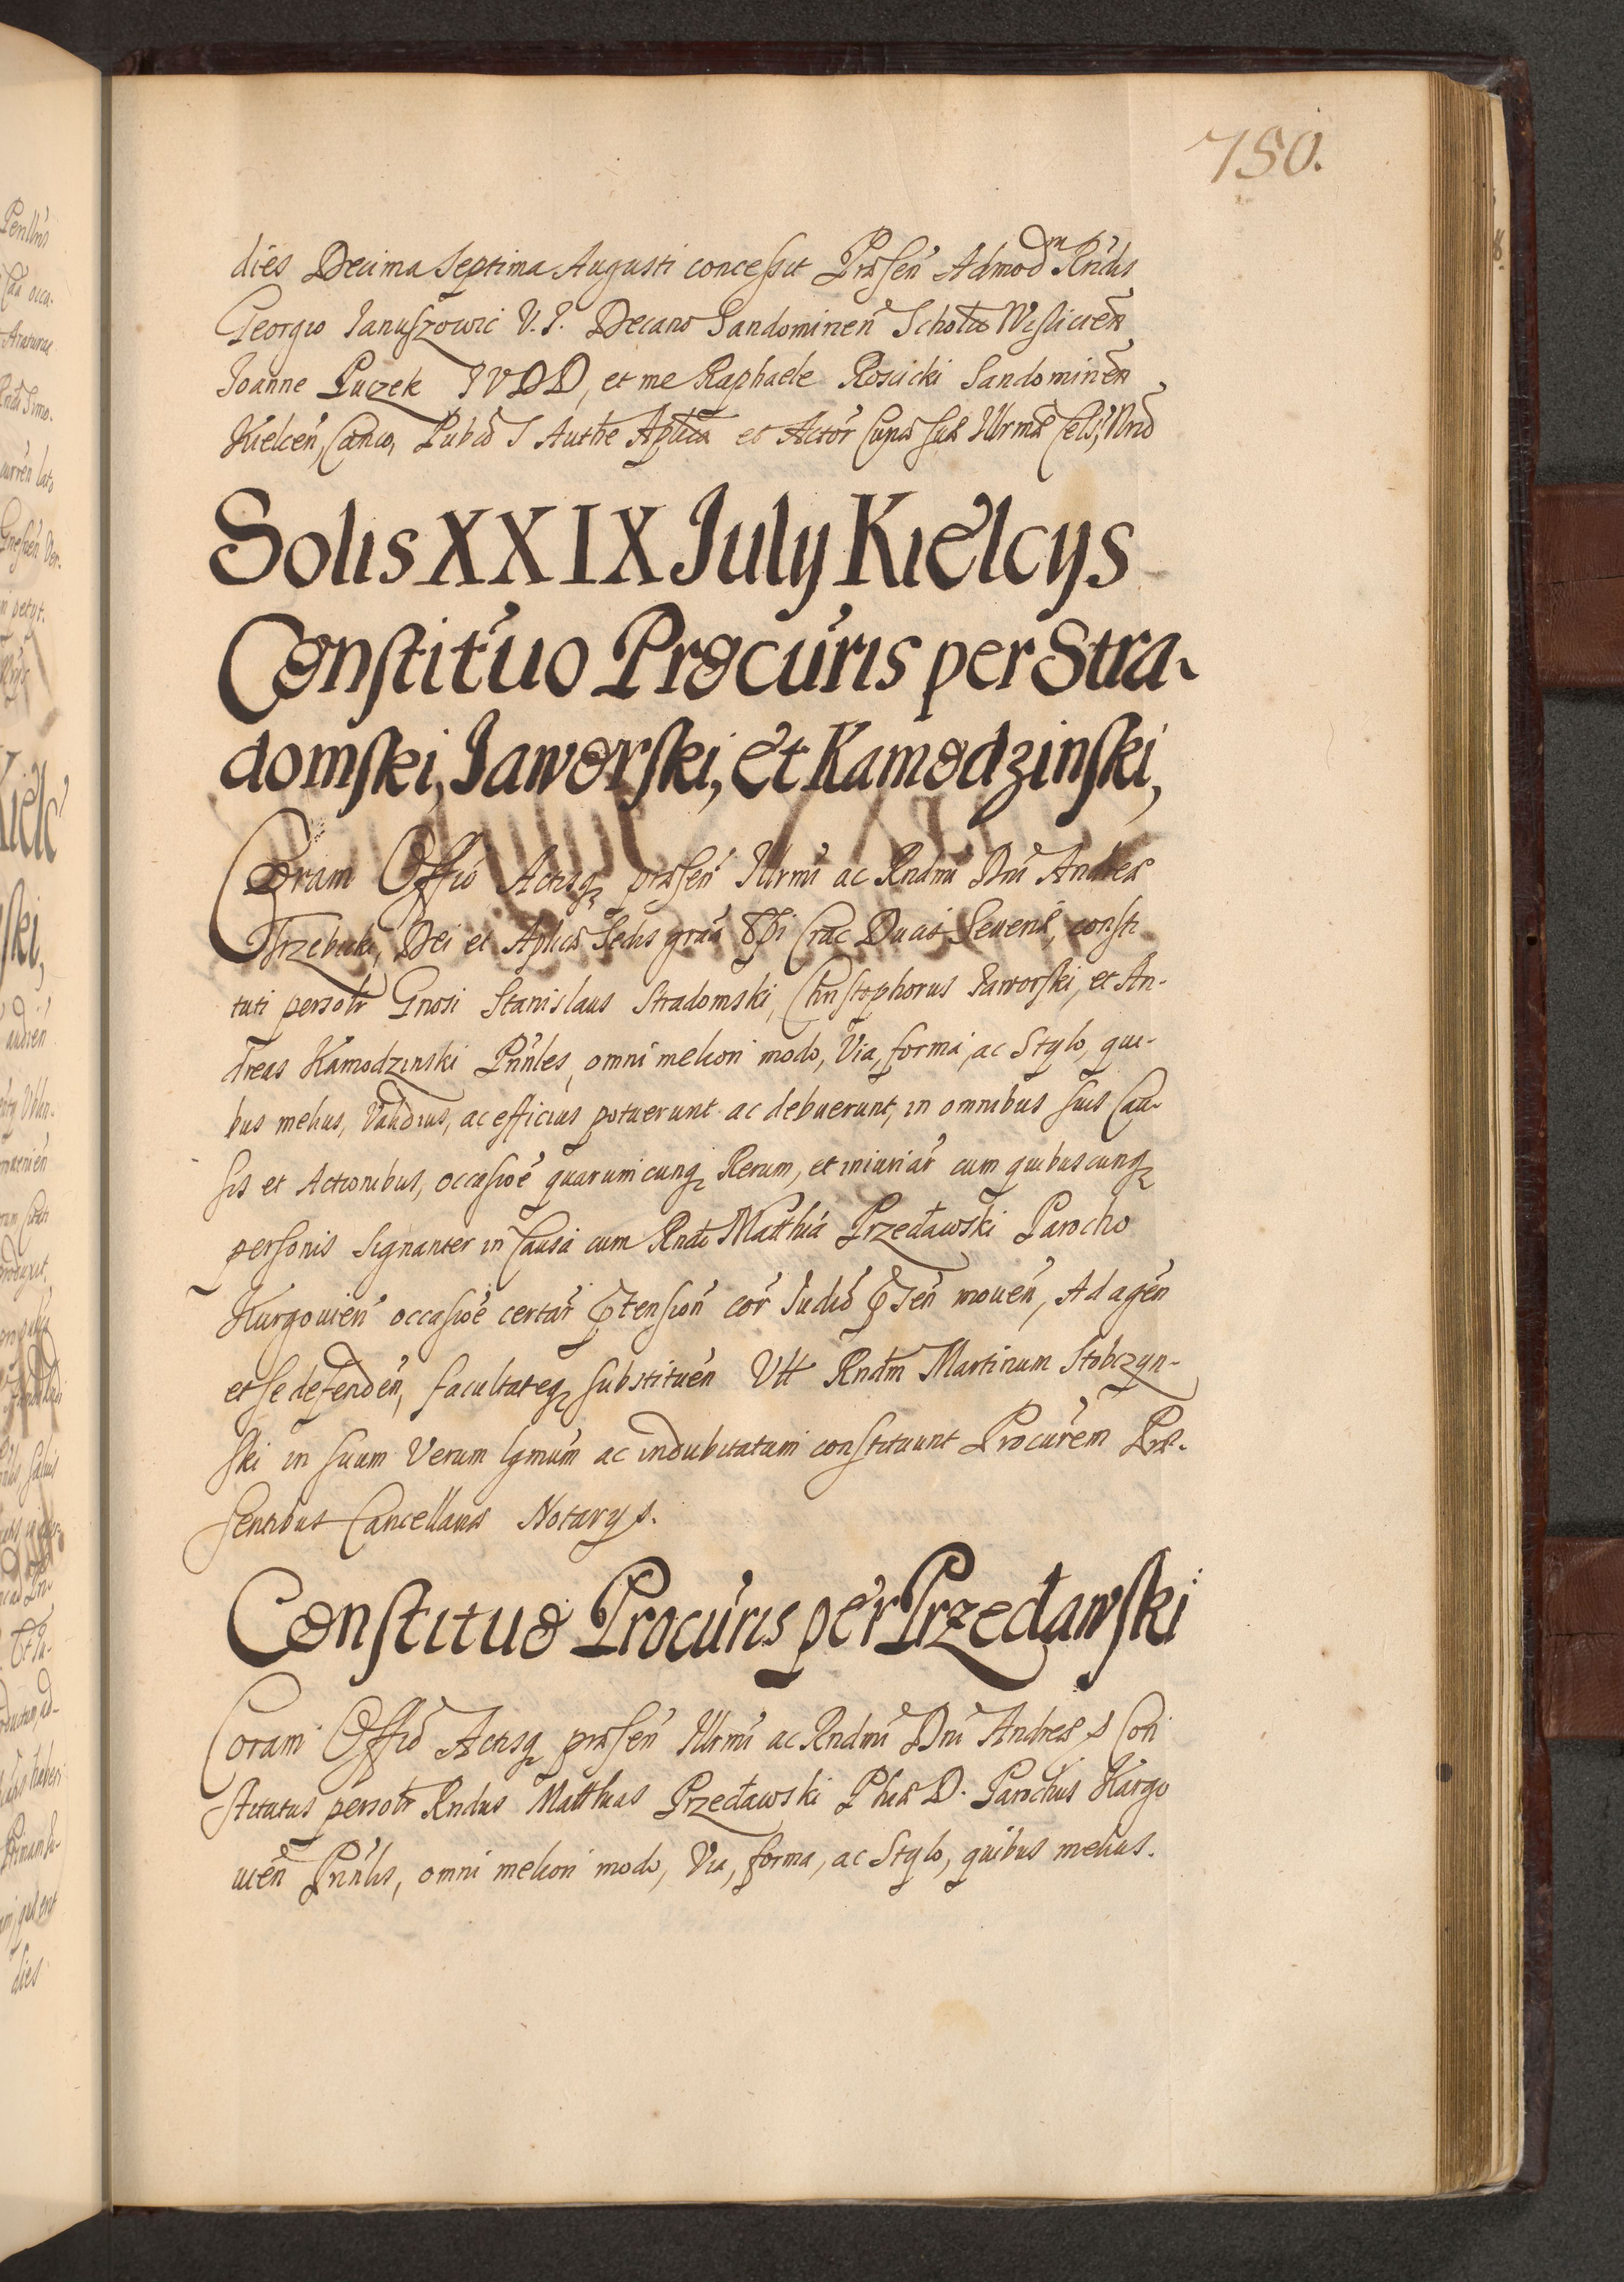 750.
dies Decima Septima Augusti concessit Præsen Admod^m Rndis
Georgio Januszowic V.J. Decano Sandomirien Schola Wislicien
Joanne Puczek JVDD, et me Raphaele Rosicki Sandomirien
Kielcen, Canco, Pubco S Authe Aplica et Actor Curiæ suæ Illrmæ Cels, Nrio
Solis XXIX July Kielcys
Constit'uo Procuris per Stra-
domski, Jaworski, et Kamodzinski,
Coram Offio Actisq præsen Illrmi ac Rndmi Dni Andreæ
Trzebicki, Dei et Aplicæ Sedis gratia Epi Crac Ducis Severiæ, consti
tuti persolr Gnosi Stanislaus Stradomski, Christophorus Jaworski, et An-
dreas Kamodzinski Pnnles, omni meliori modo, Via, forma, ac Stylo, qui-
bus melius, Validius, ac efficius potuerunt ac debuerunt, in omnibus suis Cau-
sis et Actionibus, occasioe quarumcunq Rerum, et iniuriar cum quibuscunq
personis signanter in Causa cum Rndo Matthia Przecławski Parocho
Kurgovien occasioe certar Ptension cor Judio PSen moven, Ad agen
et se defenden, facultateq substituen Vtt Rndm Martinum Stobczyn-
ski in suum Verum lgmum ac indubitatum constituunt Procurem Præ-
sentibus Cancellariæ Notarys.
Constituo Procuris per Przecławski
Coram Offio Actisq præsen Illrmi ac Rndmi Dni Andreæ s Con
stitutus persolr Rndus Matthias Przecławski Phiæ D. Parochus Kargo
vien Pnnlis, omni meliori modo, Via, forma, ac Stylo, quibus melius.
dies